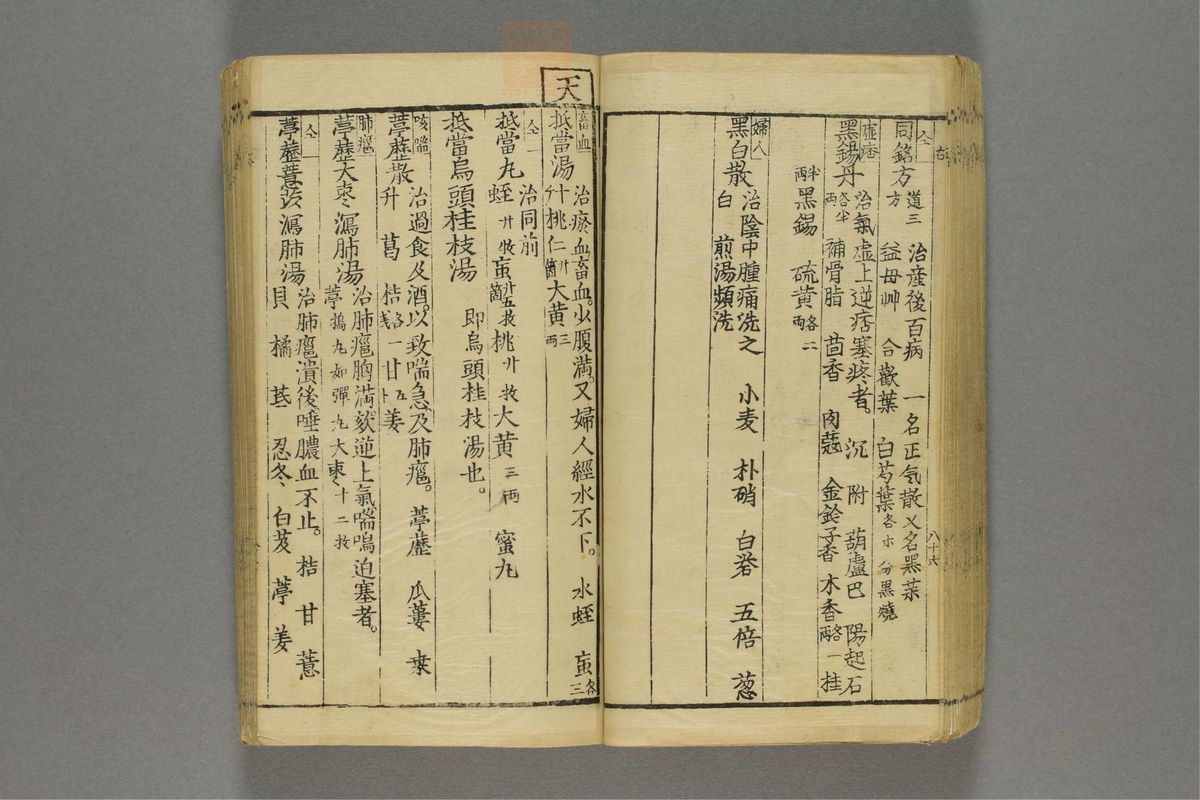 仝
右
同銘方 道三方 治産後百病 一名正気散又名黑薬
益母艸 合歡葉 白芍葉各等分黒燒
八十六
虚痞
黑錫丹 治氣虚上逆痞塞疼者。 沉 附 葫盧巴 陽起石
各半両 補骨脂 茴香 肉蔲 金鈴子香 木香各一両 桂
半両 黑錫 硫黄各二両
婦人
黑白散 治陰中腫痛洗之 小麦 朴硝 白礬 五倍 葱
白 煎湯頻洗
天
畜血
抵當湯 治瘀血畜血。少腹満。又婦人經水不下。 水蛭 䖟各三
十 桃仁廿箇 大黄三両
仝
抵當丸 治同前
蛭廿枚 䖟廿五枚 桃廿箇枚 大黄三両 蜜丸
抵當烏頭桂枝湯 即烏頭桂枝湯也。
咳喘
葶藶散 治過食及酒。以致喘急及肺癰。 葶藶 瓜蔞 桒
升 葛 桔各一戔 甘五卜 姜
肺癰
葶藶大枣瀉肺湯 治肺癰胸満欬逆上氣喘鳴迫塞者。
葶搗丸如彈丸 大枣十二枚
仝
葶藶薏苡瀉肺湯 治肺癰潰後唾膿血不止。 桔 甘 薏
貝 橘 芪 忍冬 白芨 葶 姜